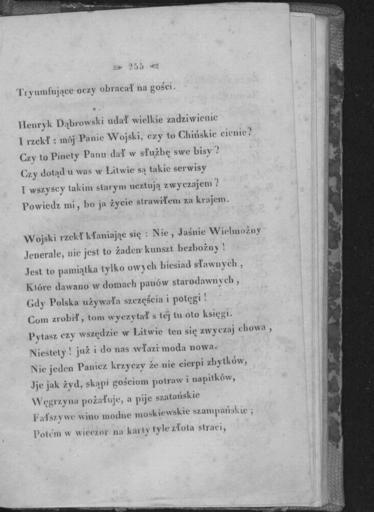 255
Tryumfujące oczy obracał na gości.
Henryk Dąbrowski udał wielkie zadziwienie
I rzekł : mój Panie Wojski, czy to Chińskie cienie?
Czy to Pinety Panu dał w służbę swe bisy ?
Czy dotąd u was w Litwie są takie serwisy
I wszyscy takim starym ucztują zwyczajem ?
Powiedz mi, bo ja życie strawiłem za krajem.
Wojski rzekł kłaniając się : Nie, Jaśnie Wielmożny
Jenerale, nie jest to żaden kunszt bezbożny !
Jest to pamiątka tylko owych biesiad sławnych ,
Które dawano w domach panów starodawnych ,
Gdy Polska używała szczęścia i potęgi !
Com zrobił, tom wyczytał s téj tu oto księgi.
Pytasz czy wszędzie w Litwie ten się zwyczaj chowa ,
Niestety ! już i do nas włazi moda nowa.
Nie jeden Panicz krzyczy że nie cierpi zbytków,
Jje jak żyd, skąpi gościom potraw i napitków,
Węgrzyna pożałuje, a pije szatańskie
Fałszywe wino modne moskiewskie szampańskie ;
Potém w wieczor na karty tyle złota straci,